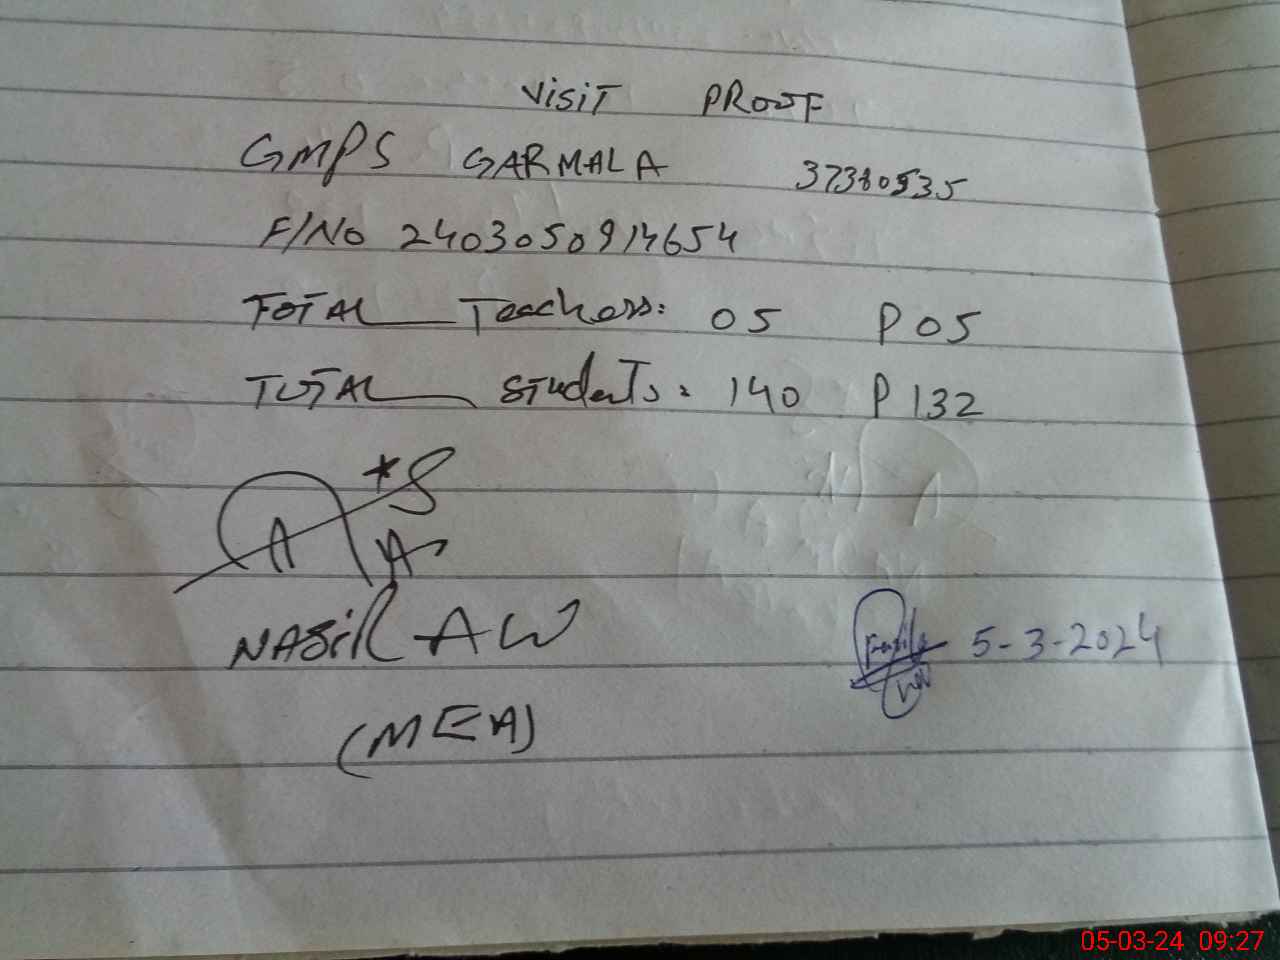 VISIT PROOF
GMPS GARMALA 37380535
F/No 2403050914654
TOTAL Teachers: 05 P 05
TOTAL Students: 140 P 132
NASIR
(MEA)
5-3-2024
05-03-24 09:27